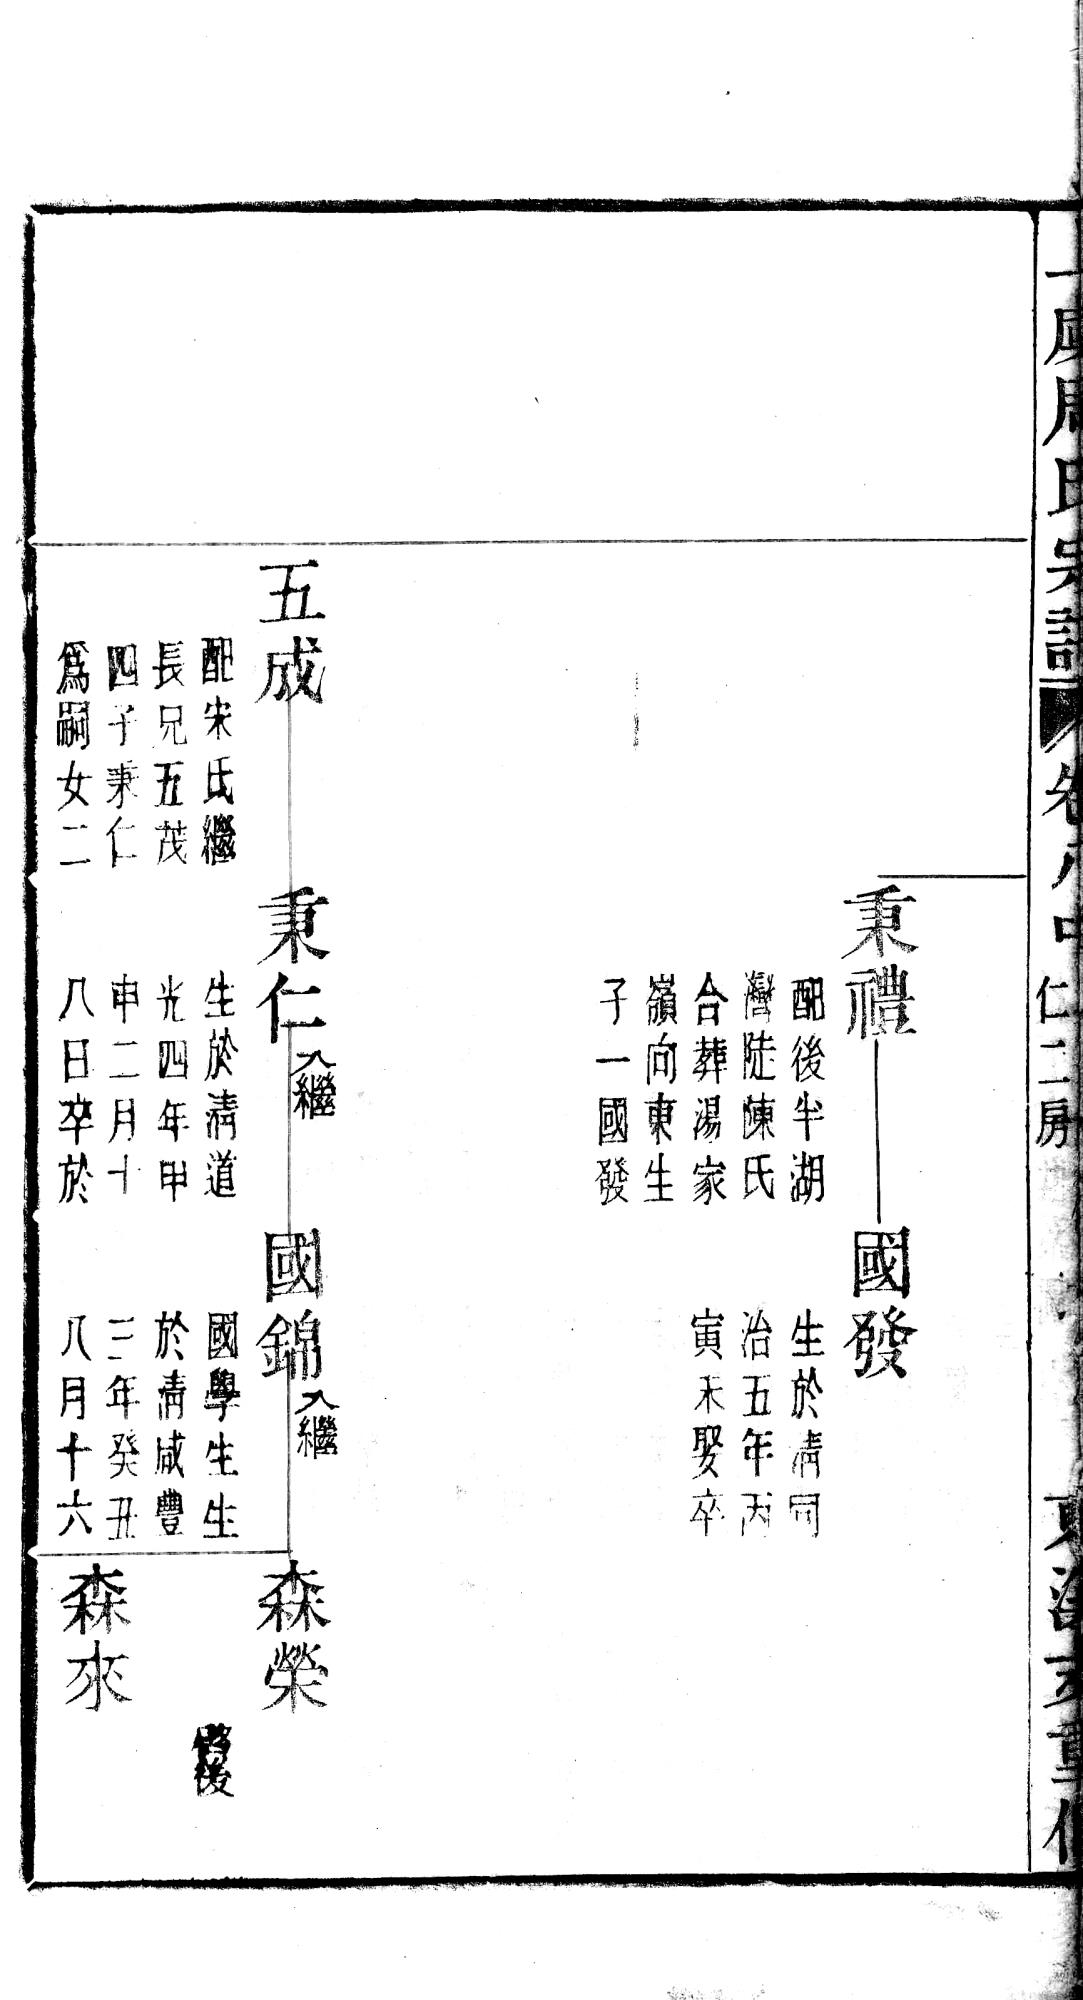 周氏宗譜
卷八中
仁二房
重修
秉禮
配後半湖
灣陡陳氏
合葬湯家
嶺向東生
子一國發
國發
生於清同
治五年丙
寅未娶卒
五成
配宋氏繼
長兄五茂
四子秉仁
爲嗣女二
秉仁
入繼
生於清道
光四年甲
申二月十
八日卒於
國錦
入繼
國學生生
於清咸豐
三年癸丑
八月十六
森榮
後
森來